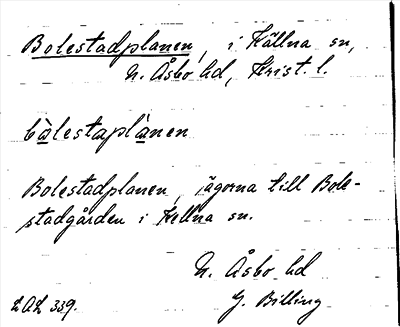 Bolestadplanen, i Källna sn,
N. Åsbo hd, Krist. l.
bàlestaplànen
Bolestadplanen, ägorna till Bole-
stadgården i Källna sn.
N. Åsbo hd
G. Billing
LAL 339.